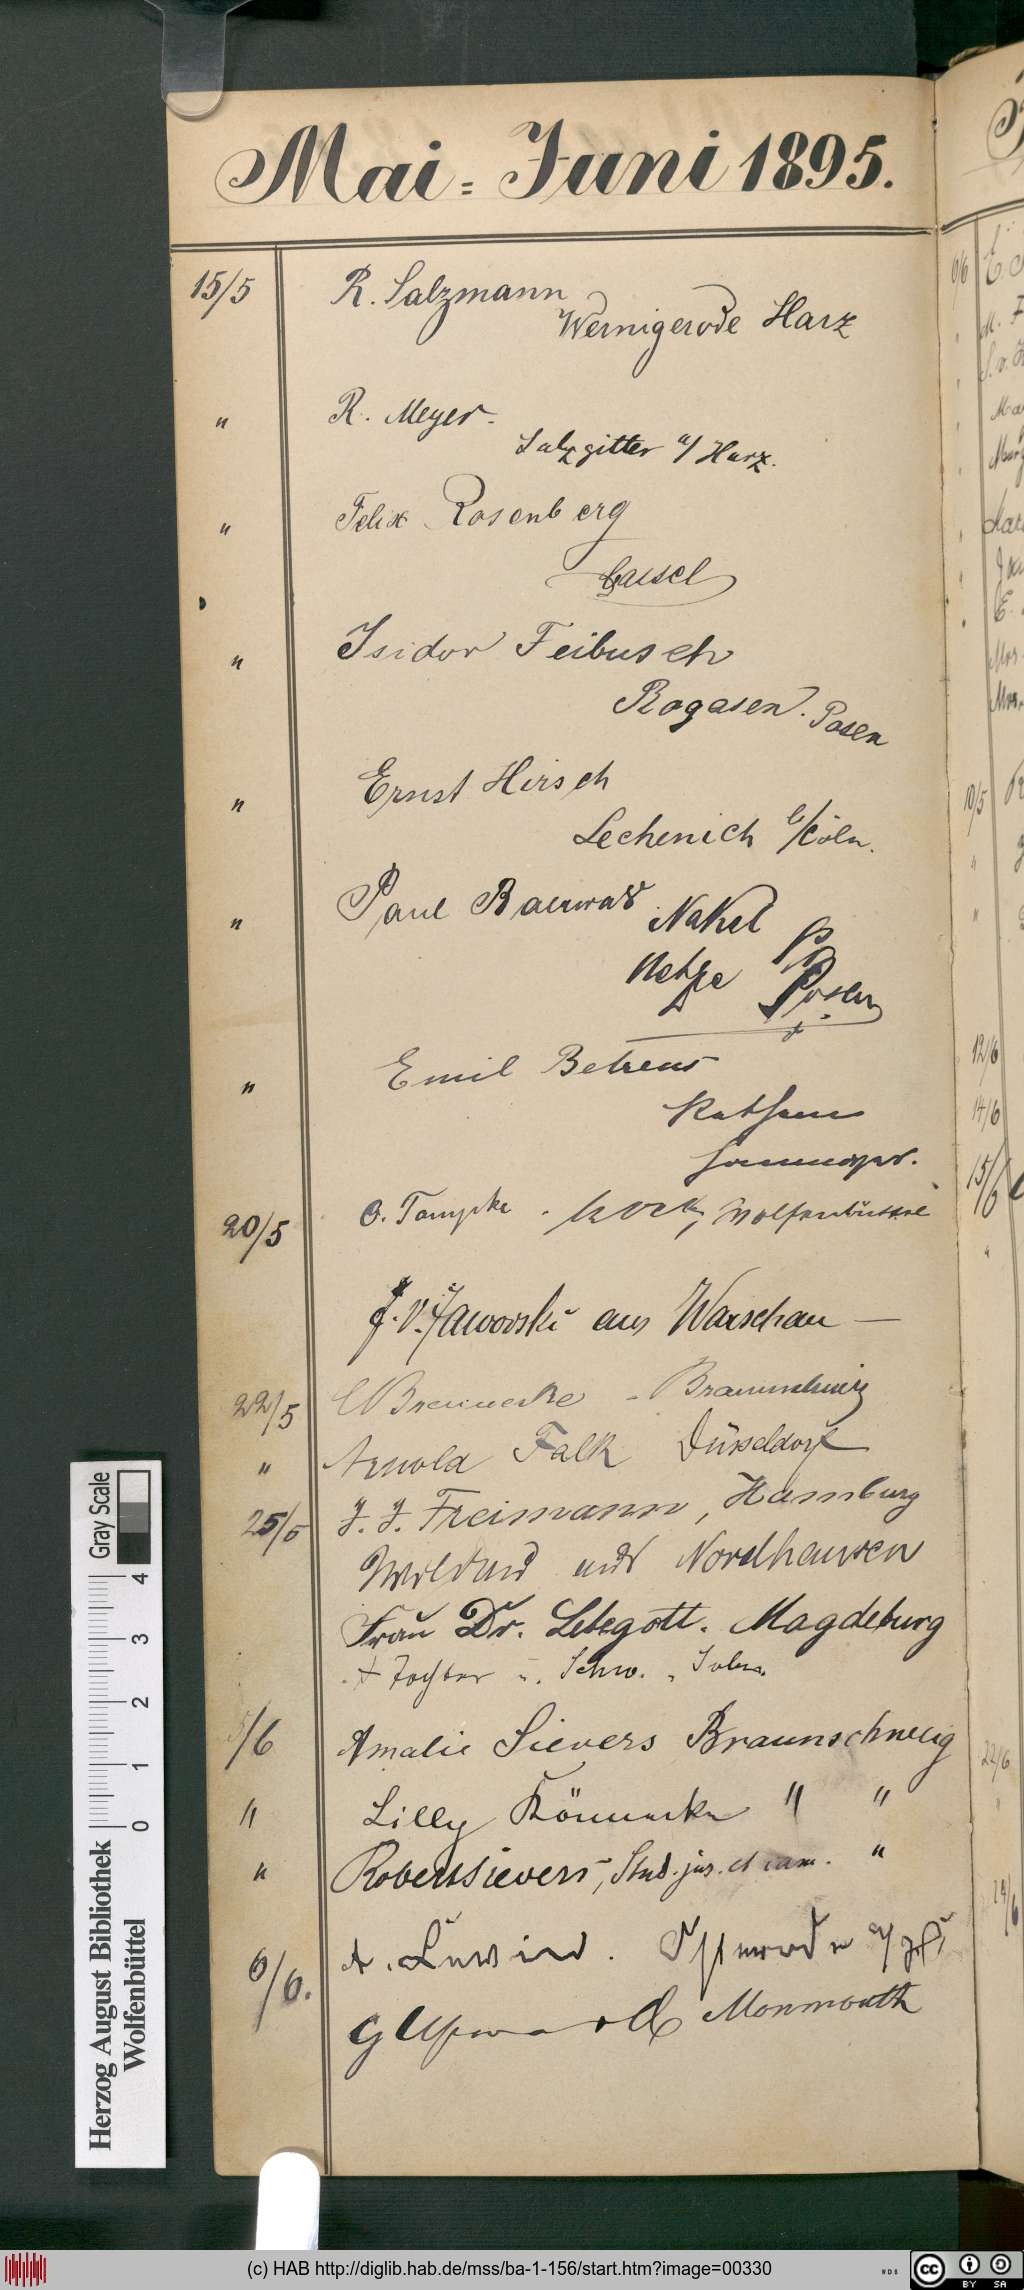 Mai = Juni 1895.
15/5 R. Salzmann
Wernigerode Harz
" R. Meyer.
Salzgitter a/ Harz.
" Felix Rosenberg
Cassel
" Isidor Feibusch
Rogasen. Posen
" Ernst Hirsch
Lechenich b/Cöln.
" Paul Baerwald Nakel
Netze Posen
" Emil Behrens
20/5 O. Tampke. Wolfenbüttel
J. v. Jaworski aus Warschau —
22/5 Brennecke - Braunschweig
" Arnold Falk Düsseldorf
25/5 J. J. Freimann, Hamburg
und Nordhausen
Frau Dr. Lebegott. Magdeburg
+ Tochter u. Schw. u. Sohn.
5/6 Amalie Sievers Braunschweig
" Lilly Könnecke " "
" Robert Sievers, Stud. jur. et cam. "
6/6. A. Osterode a/
G Monmouth
Gray Scale
0 1 2 3 4
Herzog August Bibliothek
Wolfenbüttel
10/5
12/6
14/6
15/6
22/6
(c) HAB http://diglib.hab.de/mss/ba-1-156/start.htm?image=00330
WDB
cc BY SA